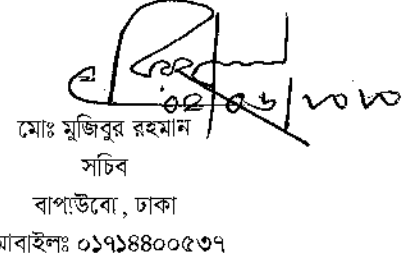 মোঃ মুজিবুর রহমান
সচিব
বাপাউবো, ঢাকা
মোবাইলঃ ০১৭১৪৪০০৫৩৭